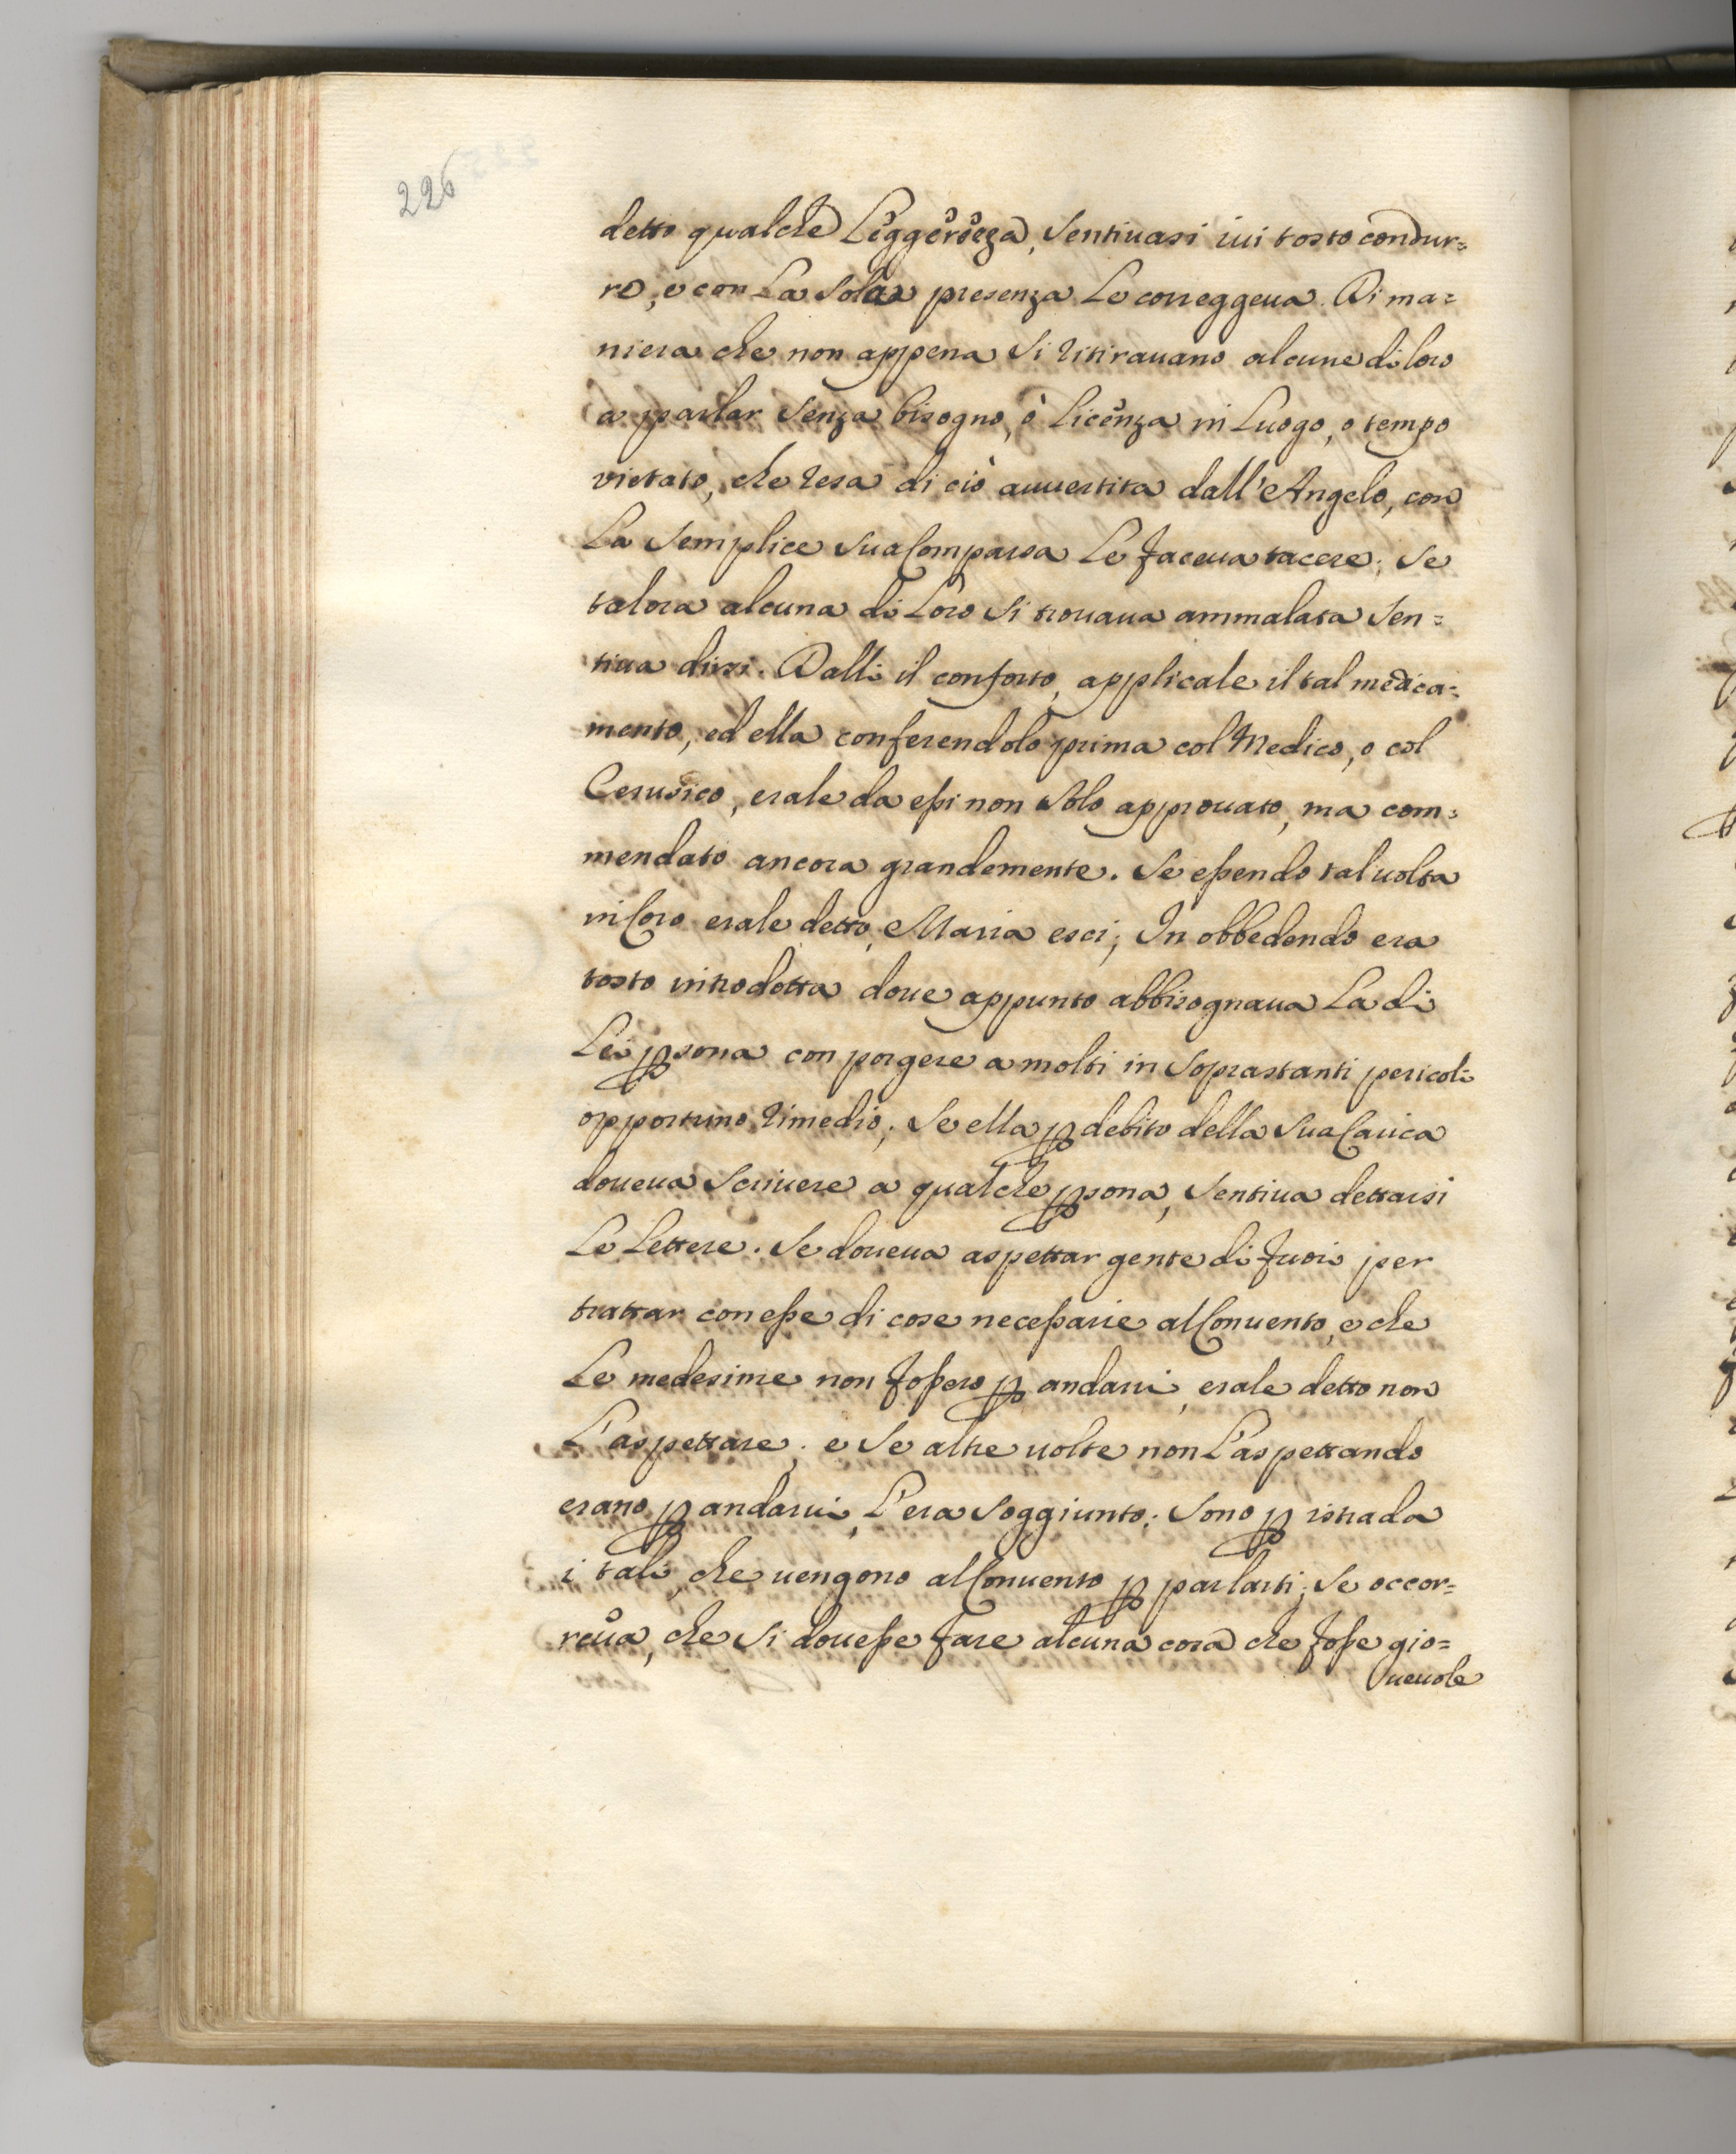 226
detto qualche Leggerezza, sentiuasi iui tosto condur=
re, e con La sola presenza Le correggeua. Di ma=
niera che non appena si ritirauano alcune di loro
a parlar senza bisogno, ò licenza in Luogo, o tempo
vietato, che resa di ciò auuertita dall'Angelo, con
La semplice sua Comparsa Le faceua tacere; se
talora alcuna di Loro si trouaua ammalata sen=
tiua dirsi. Dalli il conforto, applicale il tal medica=
mento, ed ella conferendolo prima col Medico, o col
Cerusico, erale da essi non solo approuato, ma com=
mendato ancora grandemente. Se essendo tal uolta
in Coro erale detto, Maria esci; In obbedendo era
tosto introdotta doue appunto abbisognaua La di
Lei ꝑsona con porgere a molti in soprastanti pericoli
opportuno rimedio; Se ella ꝑ debito della sua Carica
doueua scriuere a qualche ꝑsona, sentiua dettarsi
Le Lettere. Se doueua aspettar gente di fuori per
trattar con esse di cose necessarie al Conuento, e che
Le medesime non fossero ꝑ andarui, erale detto non
L'aspettare; e se altre uolte non L'aspettando
erano ꝑ andarui, L'era soggiunto: Sono ꝑ istrada
i tali, che uengono al Conuento ꝑ parlarti; se occor=
reua, che si douesse fare alcuna cosa che fosse gio=
ueuole